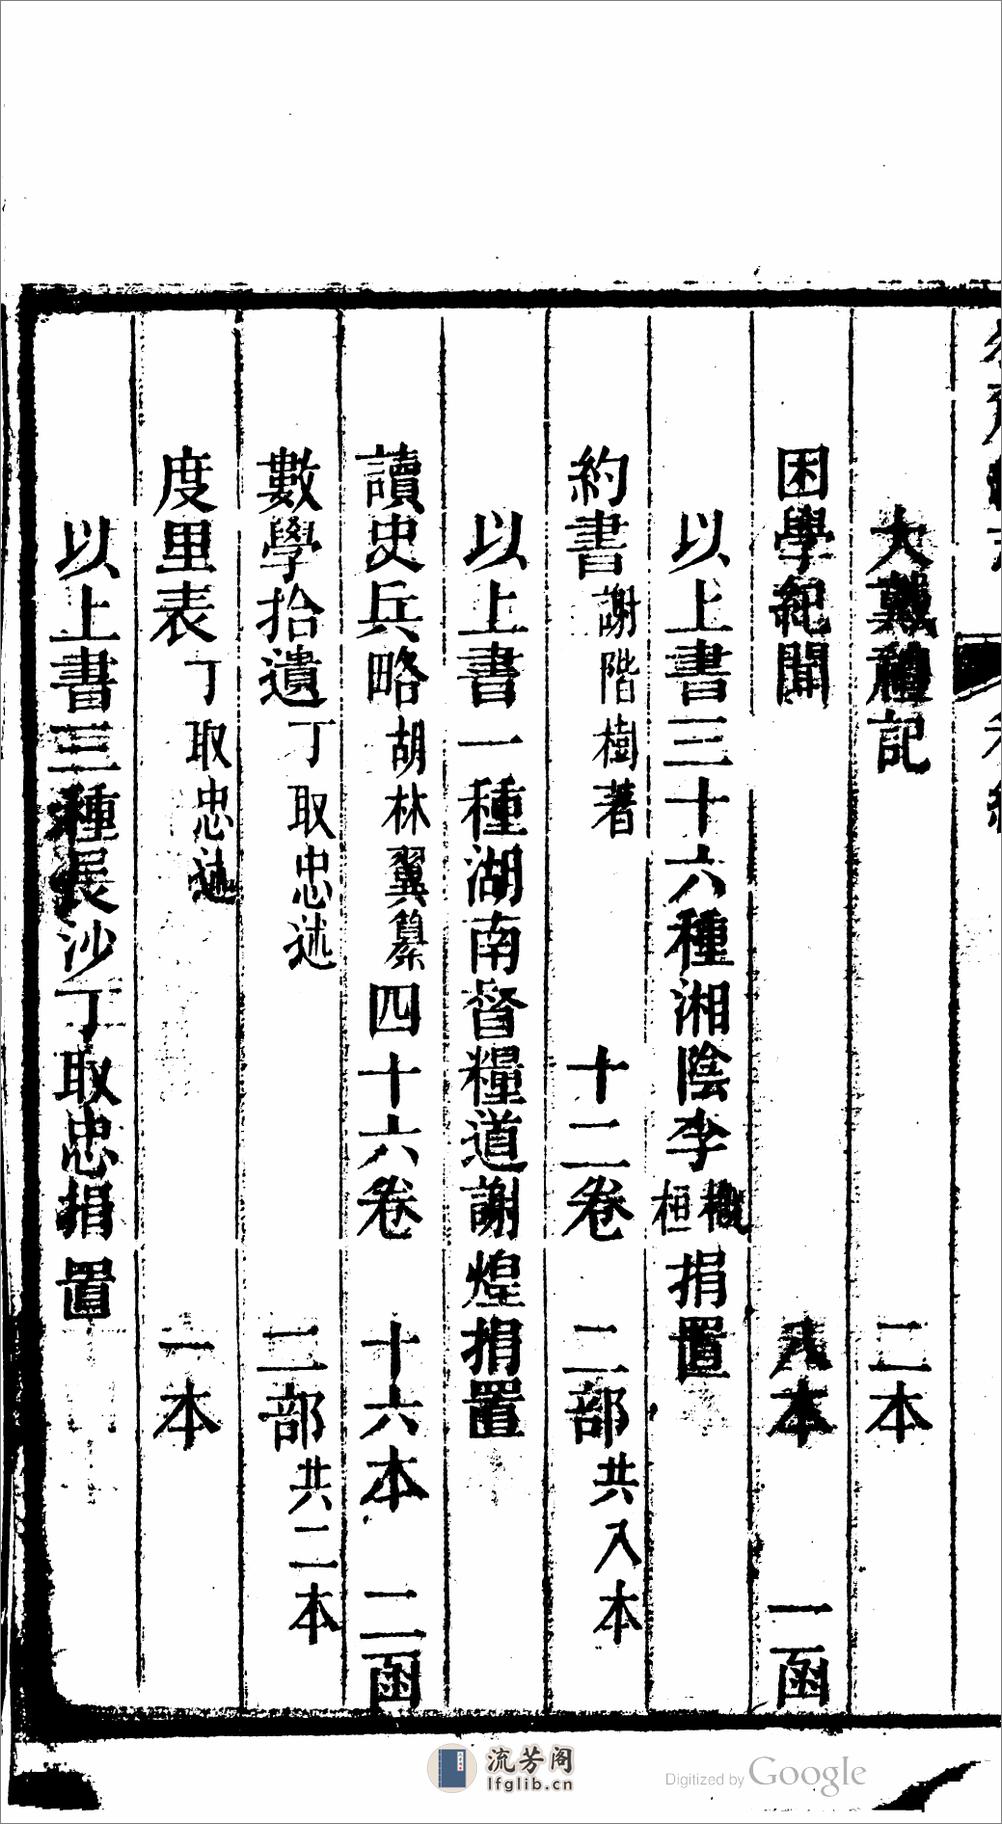 大戴禮記 二本
困學紀聞 八本 一函
以上書三十六種湘陰李概桓捐置
約書謝階樹著 十二卷 二部共八本
以上書一種湖南督糧道謝煌捐置
讀史兵略胡林翼纂四十六卷 十六本 二函
數學拾遺丁取忠述 二部共二本
度里表丁取忠述 一本
以上書三種長沙丁取忠捐置
流芳阁
lfglib.cn
Digitized by Google